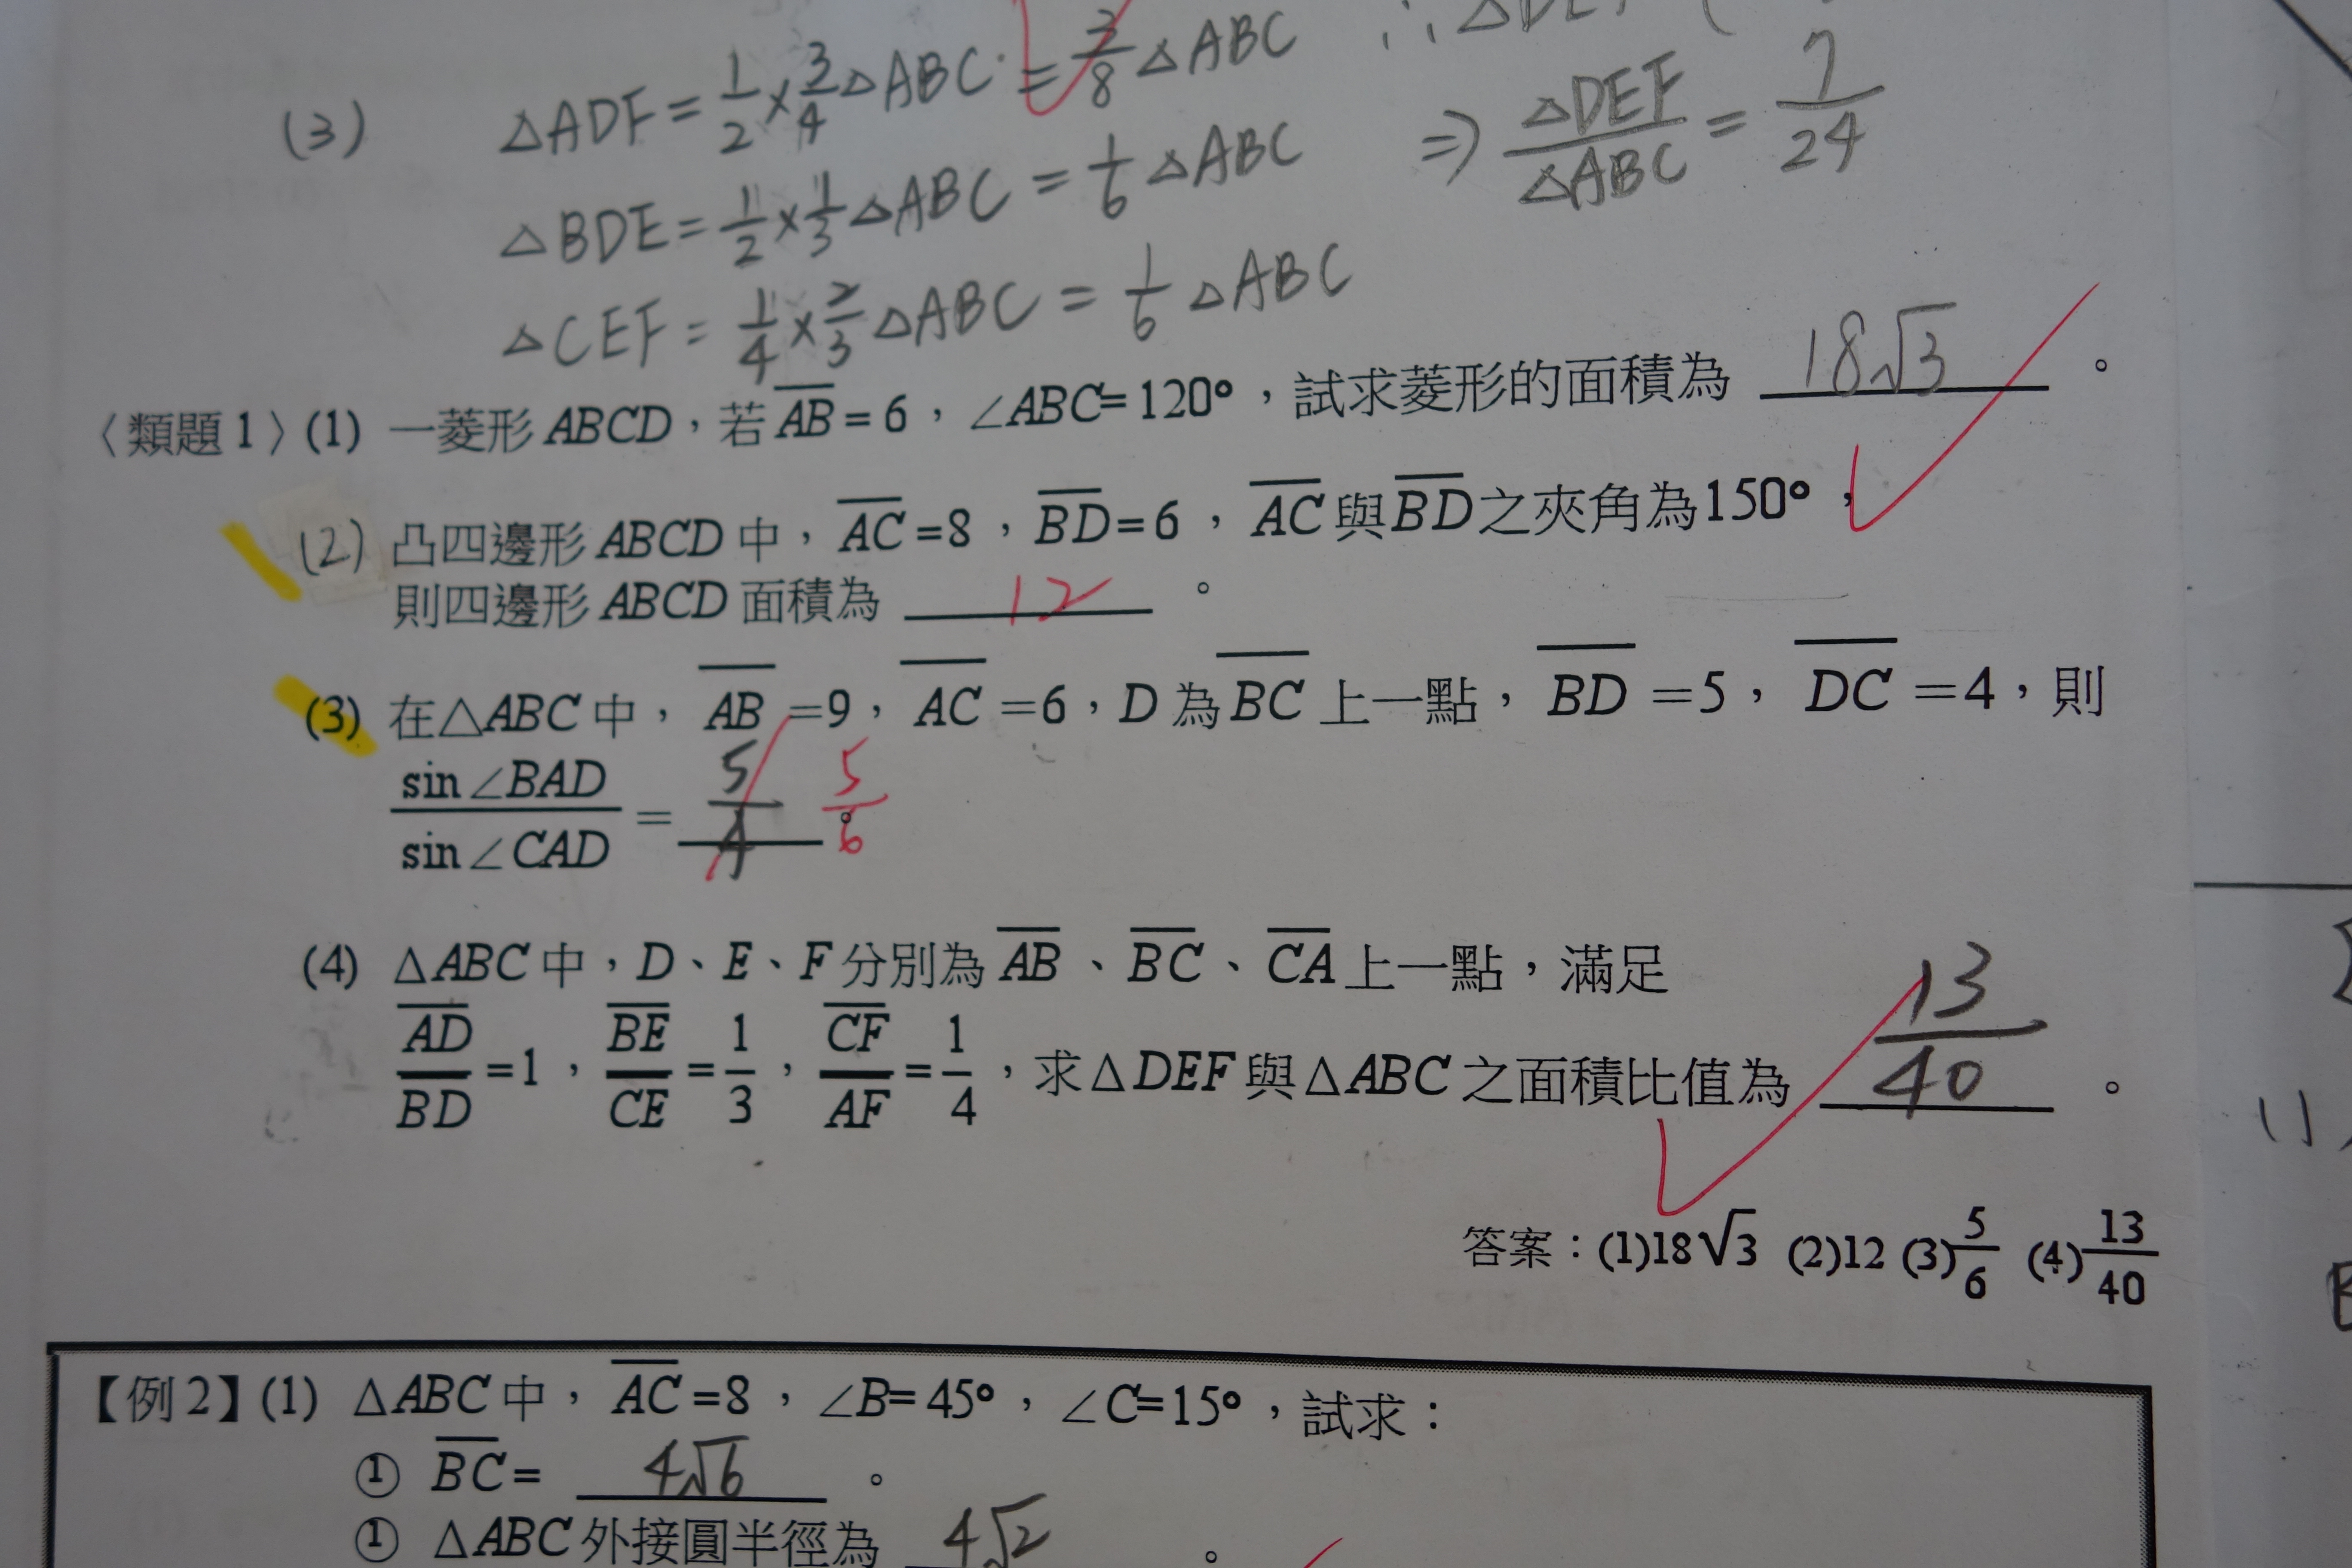 ∴△DEF (
(3) △ADF = 1/2 × 3/4 △ABC = 3/8 △ABC
⇒ △DEF/△ABC = 7/24
△BDE = 1/2 × 1/3 △ABC = 1/6 △ABC
△CEF = 1/4 × 2/3 △ABC = 1/6 △ABC
〈類題1〉(1) 一菱形ABCD，若AB=6，∠ABC=120°，試求菱形的面積為 18√3 。
(2) 凸四邊形ABCD中，AC=8，BD=6，AC與BD之夾角為150°，
則四邊形ABCD面積為 12 。
(3) 在△ABC中，AB=9，AC=6，D為BC上一點，BD=5，DC=4，則
sin∠BAD/sin∠CAD = 5/4 。 5/6
(4) △ABC中，D、E、F分別為AB、BC、CA上一點，滿足
AD/BD=1，BE/CE=1/3，CF/AF=1/4，求△DEF與△ABC之面積比值為 13/40 。
答案：(1)18√3 (2)12 (3)5/6 (4)13/40
【例2】(1) △ABC中，AC=8，∠B=45°，∠C=15°，試求：
① BC= 4√6 。
① △ABC外接圓半徑為 4√2 。